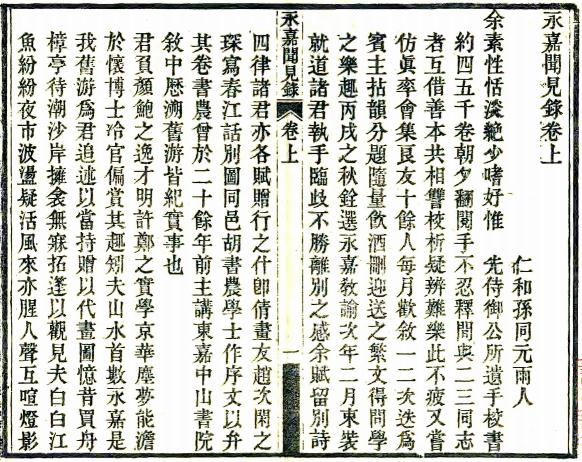 永嘉聞見錄卷上
仁和孫同元雨人
余素性恬淡絶少嗜好惟 先侍御公所遺手校書
約四五千卷朝夕翻閱手不忍釋閒與二三同志
者互借善本共相讐校析疑辨難樂此不疲又嘗
仿眞率會集良友十餘人每月歡敘一二次迭爲
賓主拈韻分題隨量飲酒刪迎送之繁文得問學
之樂趣丙戌之秋銓選永嘉敎諭次年二月束裝
就道諸君執手臨歧不勝離別之感余賦留別詩
永嘉聞見錄 卷上 一
四律諸君亦各賦贈行之什卽倩畫友趙次閑之
琛寫春江話別圖同邑胡書農學士作序文以弁
其卷書農曾於二十餘年前主講東嘉中山書院
敘中歷溯舊游皆紀實事也
君負顏鮑之逸才明許鄭之實學京華塵夢能澹
於懷博士冷官偏賞其趣矧夫山水首數永嘉是
我舊游爲君追述以當持贈以代畫圖憶昔買舟
樟亭待潮沙岸擁衾無寐拓蓬以觀見夫白白江
魚紛紛夜市波盪疑活風來亦腥人聲互喧燈影